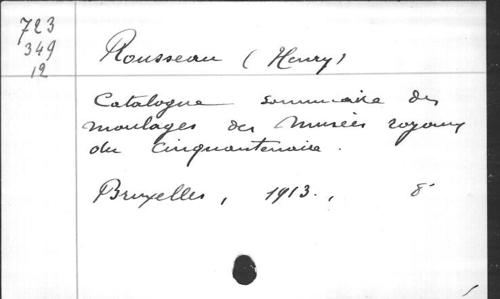 723
349
12
Rousseau (Henry)
Catalogue sommaire des
moulages des Musées royaux
du Cinquantenaire.
Bruxelles, 1913., 8°